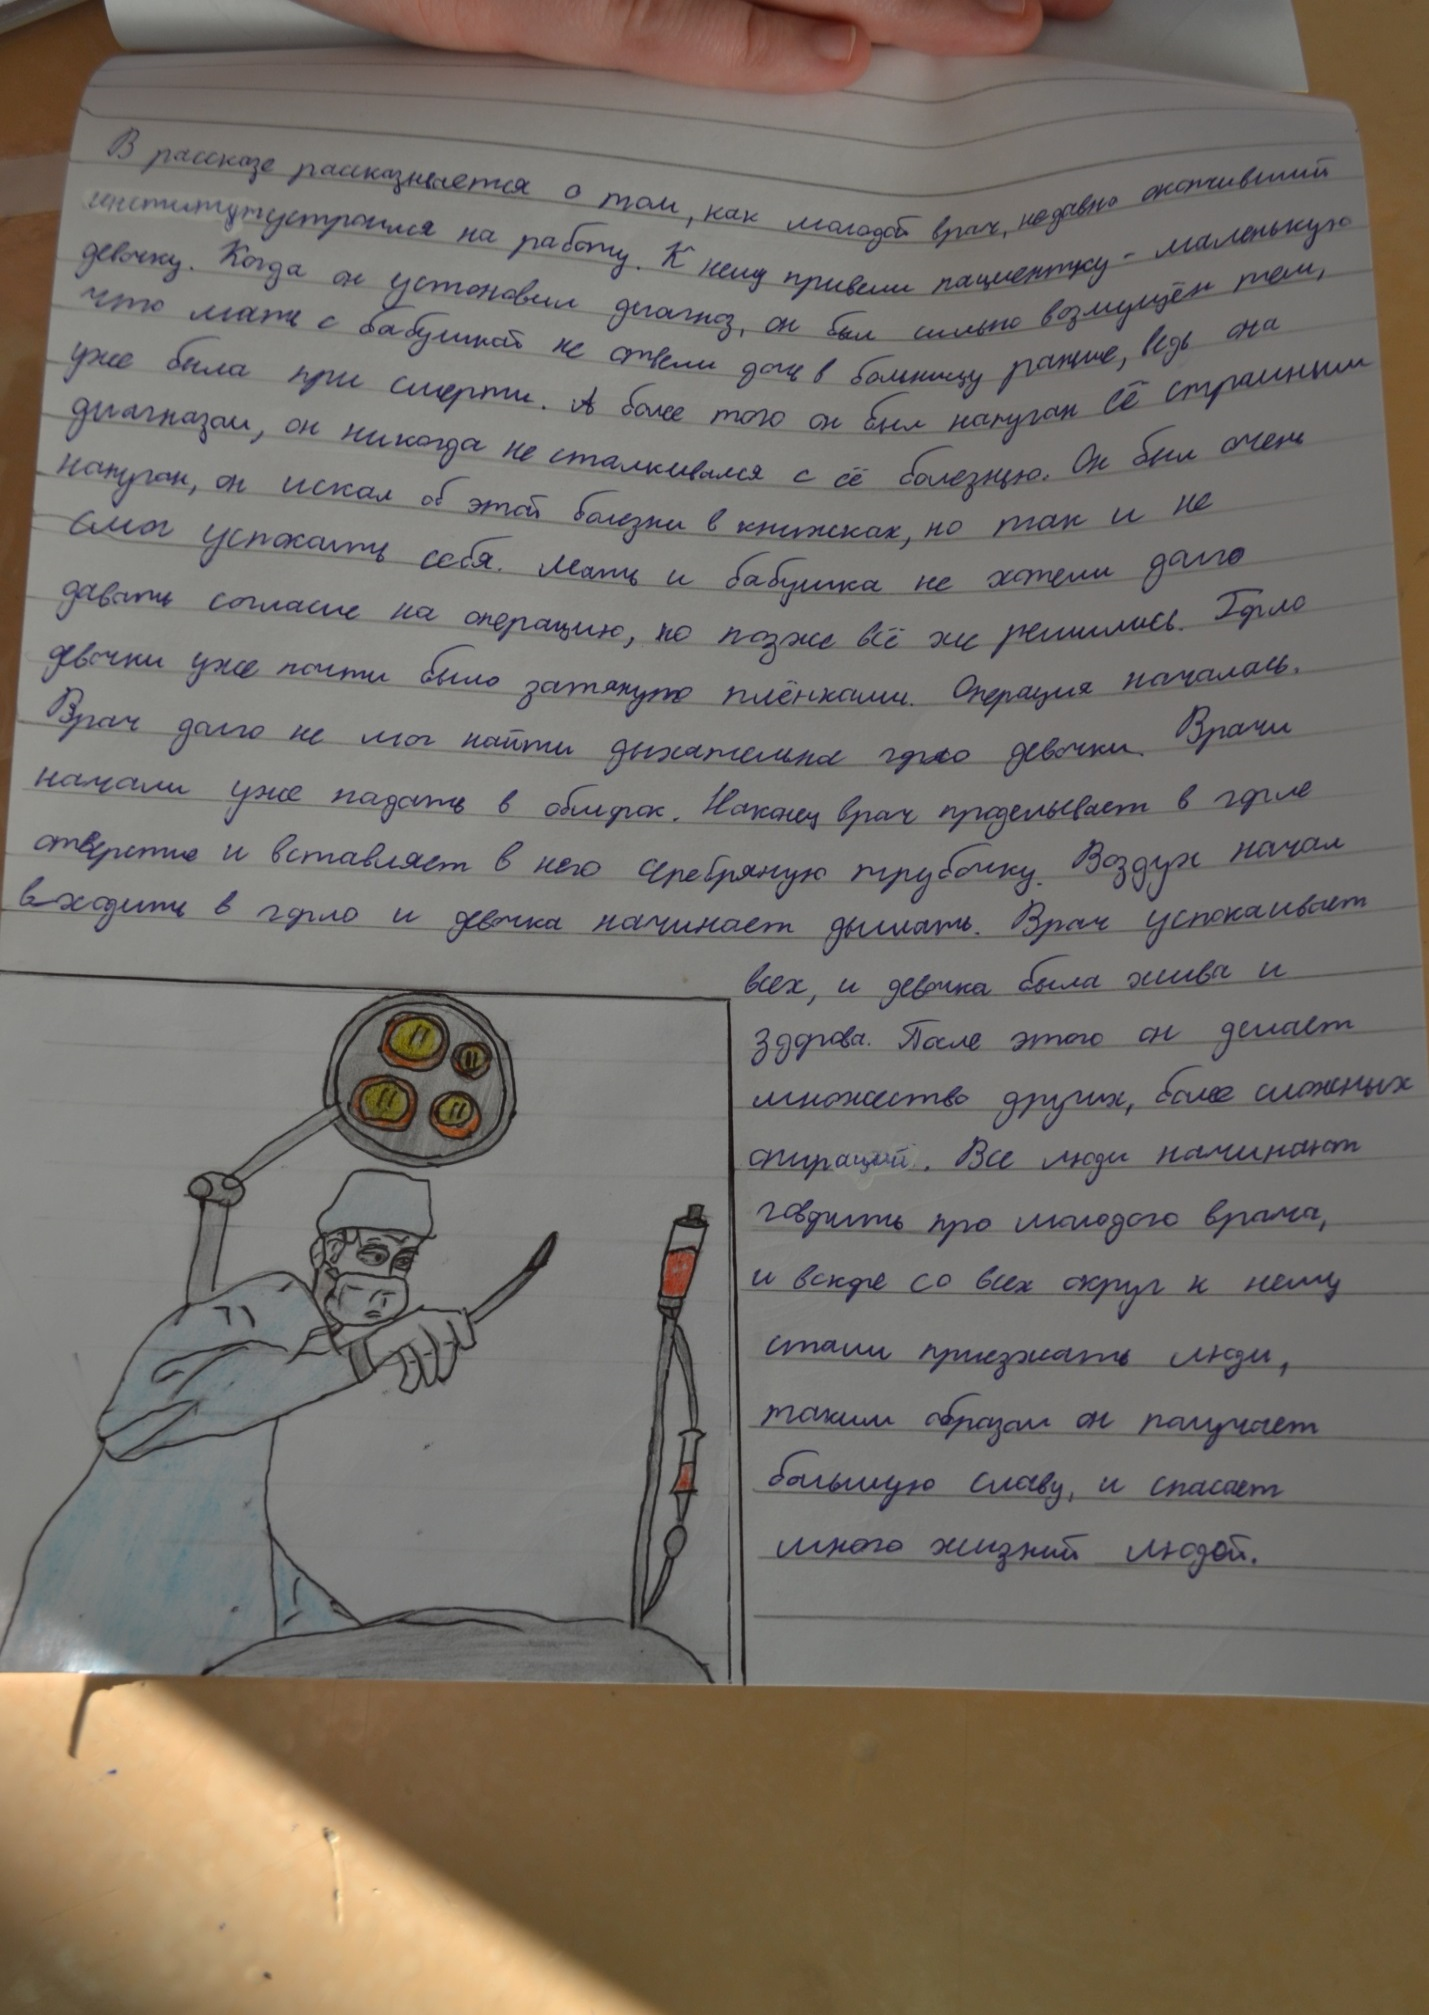 В рассказе рассказывается о том, как молодой врач, недавно окончивший
институт устроился на работу. К нему привели пациентку - маленькую
девочку. Когда он установил диагноз, он был сильно возмущён тем,
что мать с бабушкой не отвели дочь в больницу раньше, ведь она
уже была при смерти. А более того он был напуган её страшным
диагнозом, он никогда не сталкивался с её болезнью. Он был очень
напуган, он искал об этой болезни в книжках, но так и не
смог успокоить себя. Мать и бабушка не хотели долго
давать согласие на операцию, но позже всё же решились. Горло
девочки уже почти было затянуто плёнками. Операция началась.
Врач долго не мог найти дыхательное горло девочки. Врачи
начали уже падать в обморок. Наконец врач проделывает в горле
отверстие и вставляет в него серебряную трубочку. Воздух начал
входить в горло и девочка начинает дышать. Врач успокаивает
всех, и девочка была жива и
здорова. После этого он делает
множество других, более сложных
операций. Все люди начинают
говорить про молодого врача,
и вскоре со всех округ к нему
стали приезжать люди,
таким образом он получает
большую славу, и спасает
много жизней людей.